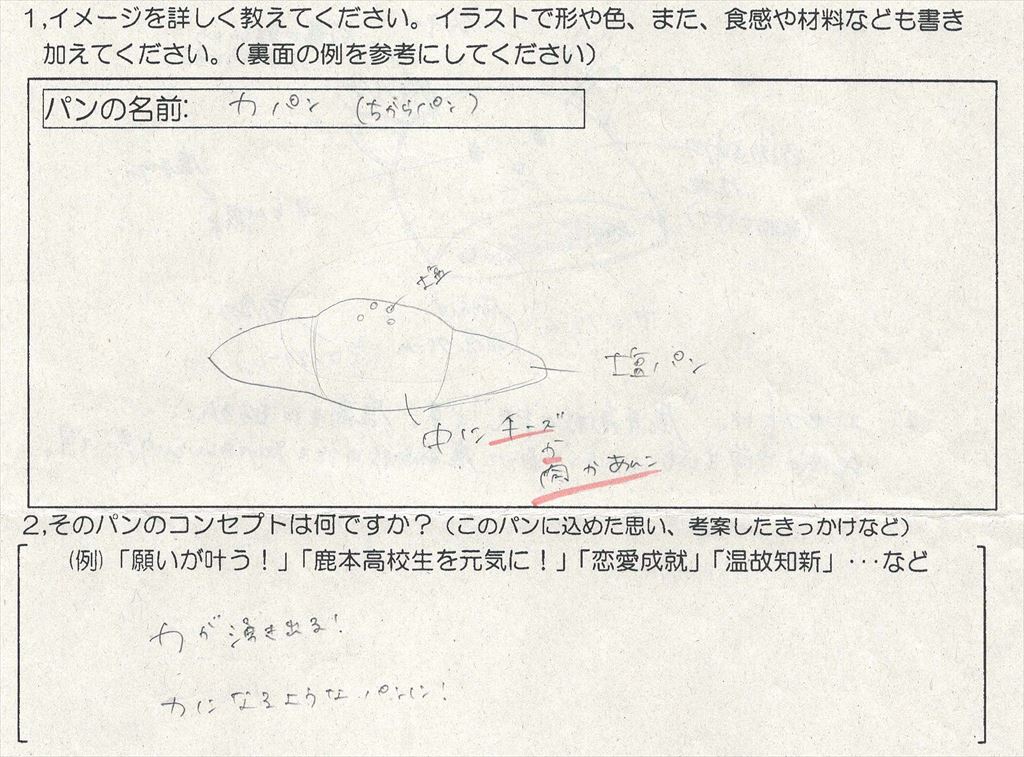 1,イメージを詳しく教えてください。イラストで形や色、また、食感や材料なども書き
加えてください。（裏面の例を参考にしてください）
パンの名前: カパン (ちからパン)
塩
塩パン
中に チーズ
か
か あんこ
2,そのパンのコンセプトは何ですか？（このパンに込めた思い、考案したきっかけなど）
(例)「願いが叶う！」「鹿本高校生を元気に！」「恋愛成就」「温故知新」・・・など
力が湧き出る!
力になるようなパンに!